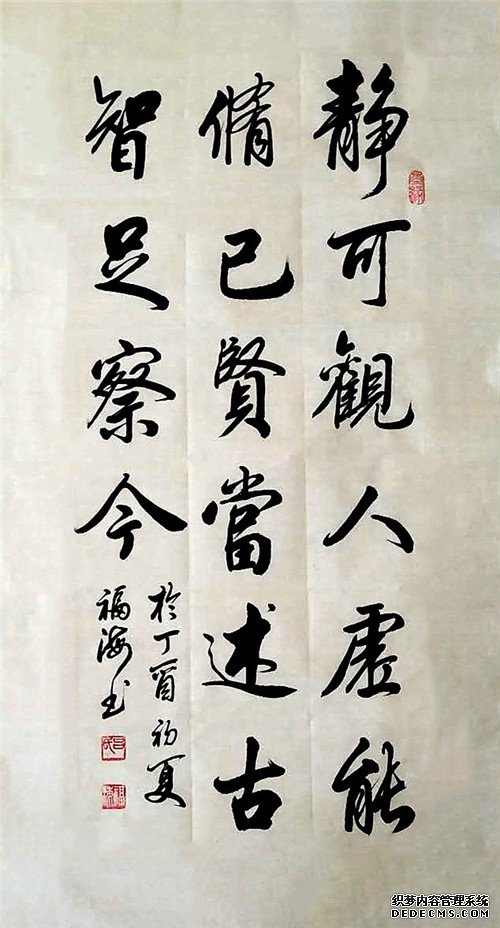 靜可觀人虛能
脩己賢當述古
智足察今
於丁酉初夏
福海书
织梦内容管理系统
DEDECMS.COM